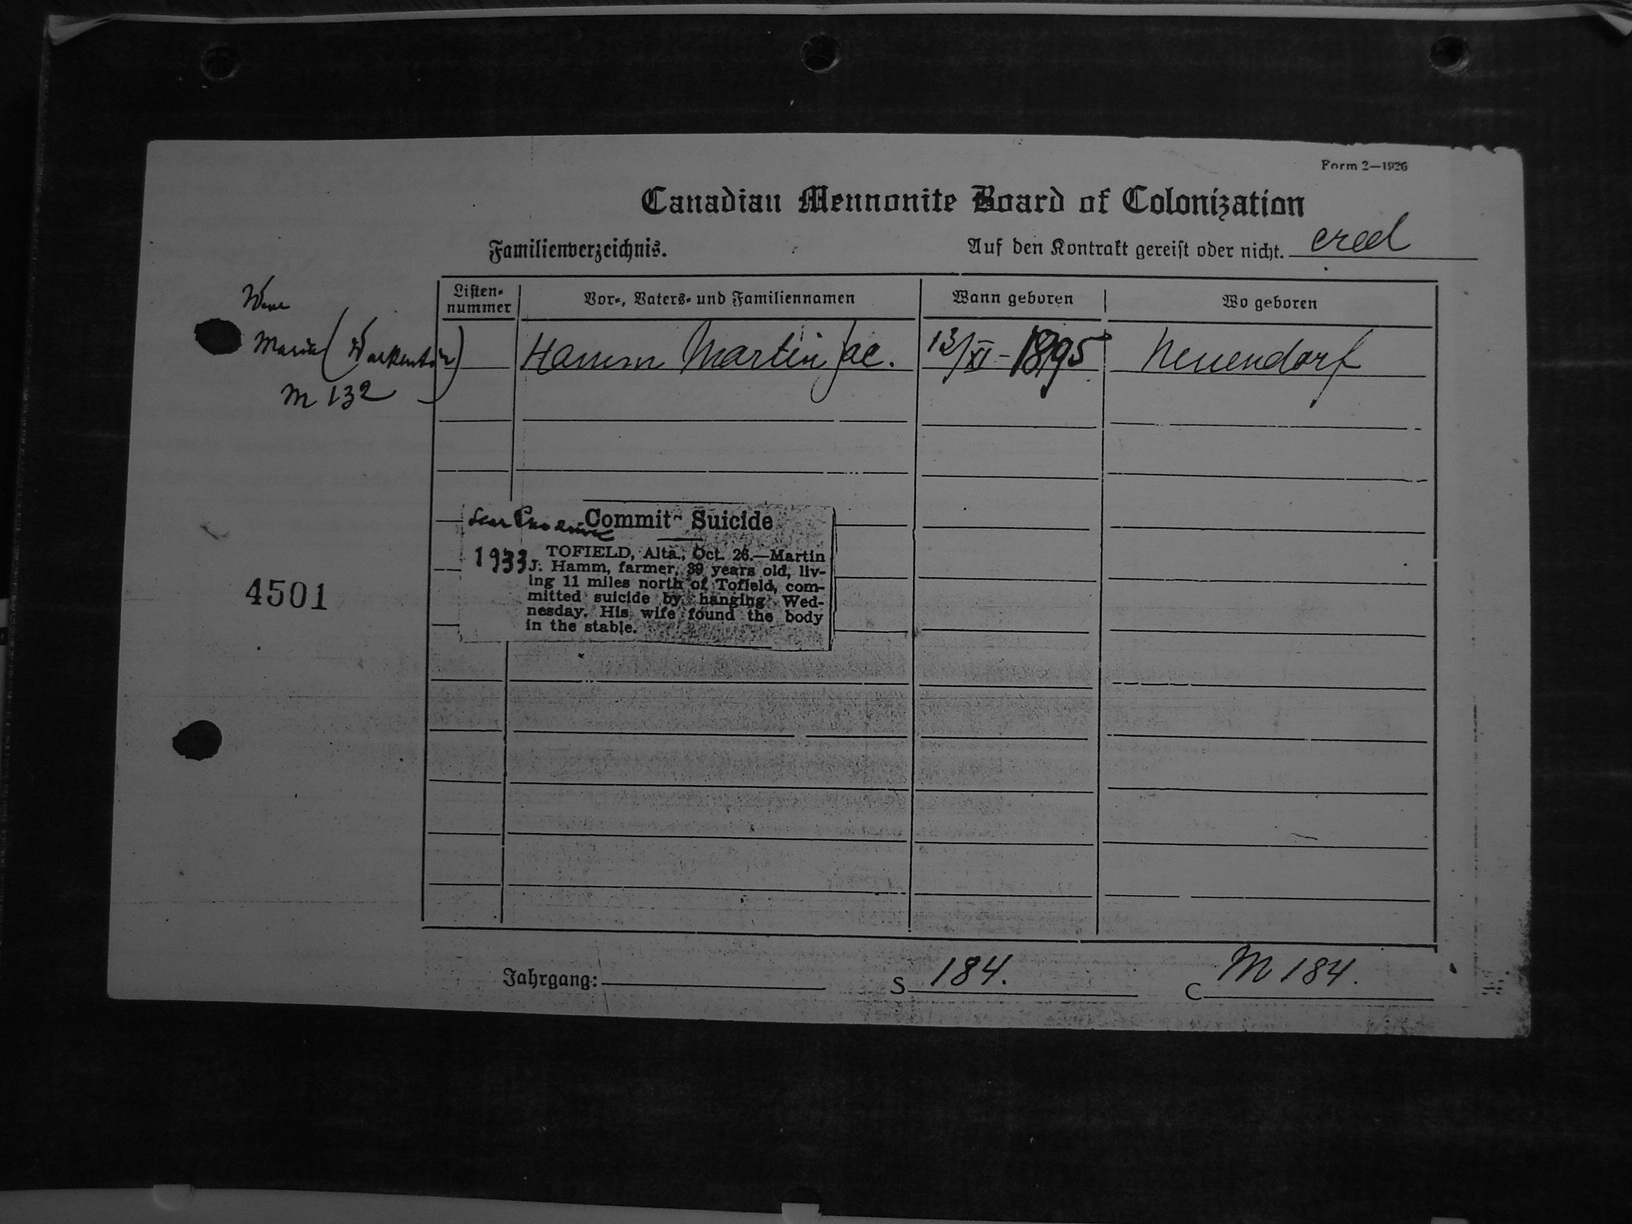 Form 2—1926
Canadian Mennonite Board of Colonization
Familienverzeichnis.
Auf den Kontrakt gereist oder nicht. cred
Listen-
nummer
Vor-, Vaters- und Familiennamen
Wann geboren
Wo geboren
Maria (Warkentin)
M 132
Hamm Martin Jac.
13/XI - 1895
Neuendorf
Commit Suicide
1933
TOFIELD, Alta., Oct. 26.—Martin
J. Hamm, farmer, 39 years old, liv-
ing 11 miles north of Tofield, com-
mitted suicide by hanging Wed-
nesday. His wife found the body
in the stable.
4501
Jahrgang:
S 184.
C M 184.